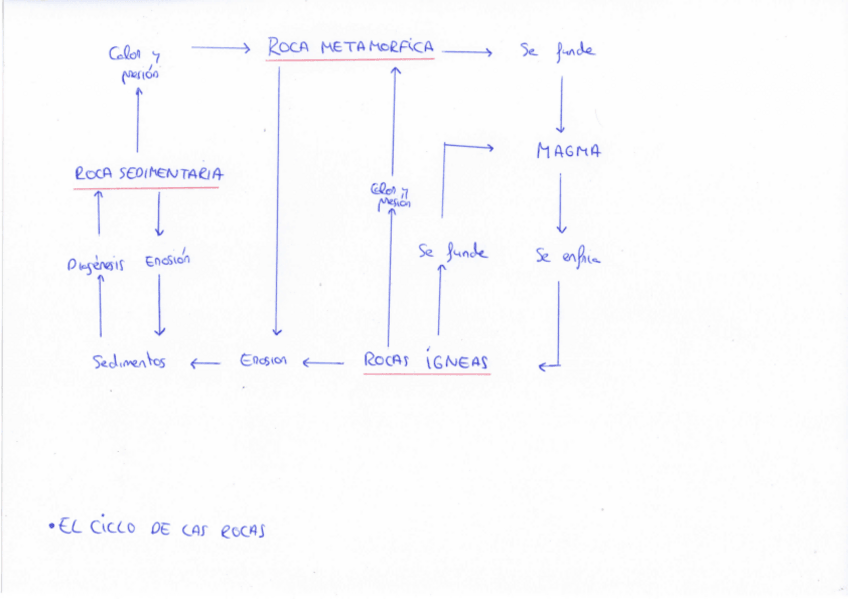 Calor y
presión
ROCA METAMORFICA
Se funde
MAGMA
ROCA SEDIMENTARIA
Calor y
presión
Se funde
Se enfria
Diagénesis
Erosión
Sedimentos
Erosion
ROCAS ÍGNEAS
• EL CICLO DE LAS ROCAS